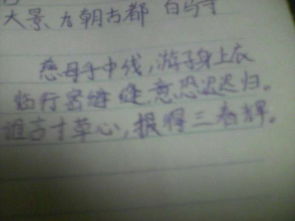 大景、九朝古都 白马寺
慈母手中线，游子身上衣
临行密缝缝，意恐迟迟归。
谁言寸草心，报得三春辉。